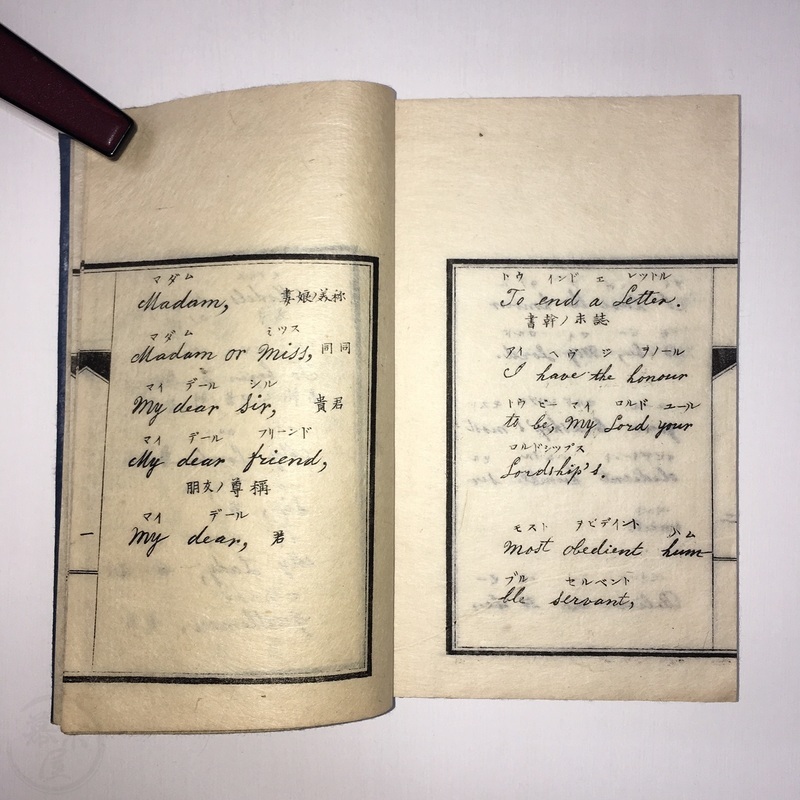 マダム
Madam, 妻娘ノ美称
マダム ミツス
Madam or Miss, 同同
マイ デール シル
My dear Sir, 貴君
マイ デール フリーンド
My dear friend,
朋友ノ尊稱
マイ デール
My dear, 君
一
トウ インド エ レツトル
To end a Letter.
書幹ノ末誌
アイ ヘヴ ジ ヲノール
I have the honour
トウ ビー マイ ロルド ユール
to be, My Lord your
ロルドシップス
Lordship's.
モスト ヲビデイント ハム
most obedient hum-
ブル セルベント
ble servant,